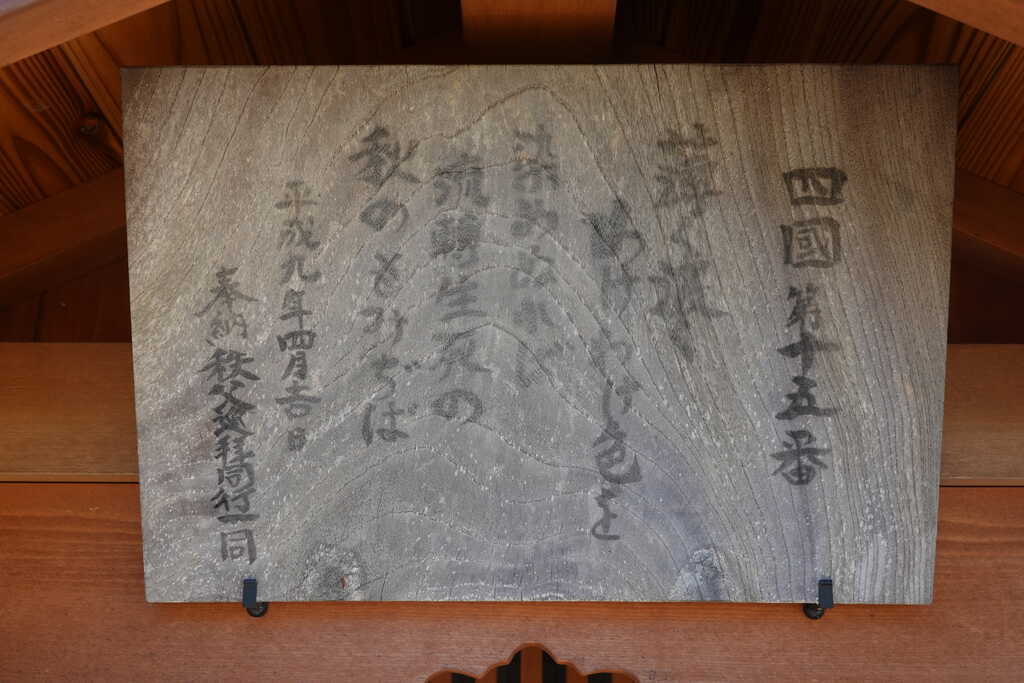 四國第十五番
薄く濃く
わけわけ色を
染めぬれば
流轉生死の
秋のもみぢば
平成九年四月吉日
奉納秩父巡拝同行一同